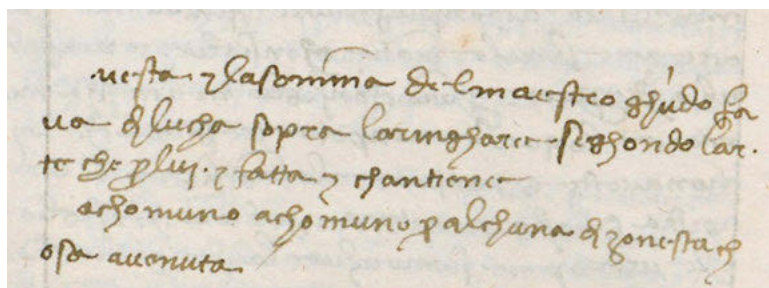 uesta · e la somma del maestro ghuido fa
ua di lucha sopra laringhare · seghondo lar ·
te che per lui · e fatta e chontiene
achomuno achomuno per alchuna dizonesta ch
osa auenuta